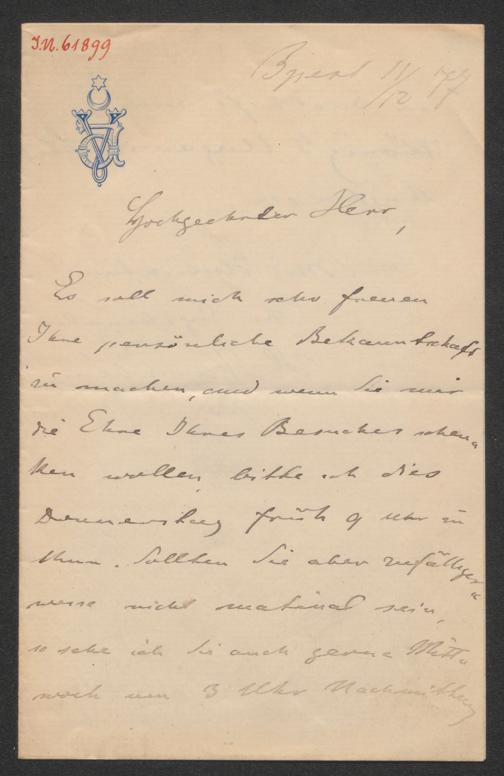 I.N. 61899
Bpest 11/12 77
Hochgeehrter Herr,
Es soll mich sehr freuen
Ihre persönliche Bekanntschaft
zu machen, und wenn Sie mir
die Ehre Ihres Besuches schen-
ken wollen, bitte ich dies
Donnerstag früh 9 Uhr zu
thun. Sollten Sie aber zufälliger-
weise nicht matinal sein,
so sehe ich Sie auch gerne Mitt-
woch um 3 Uhr Nachmittag